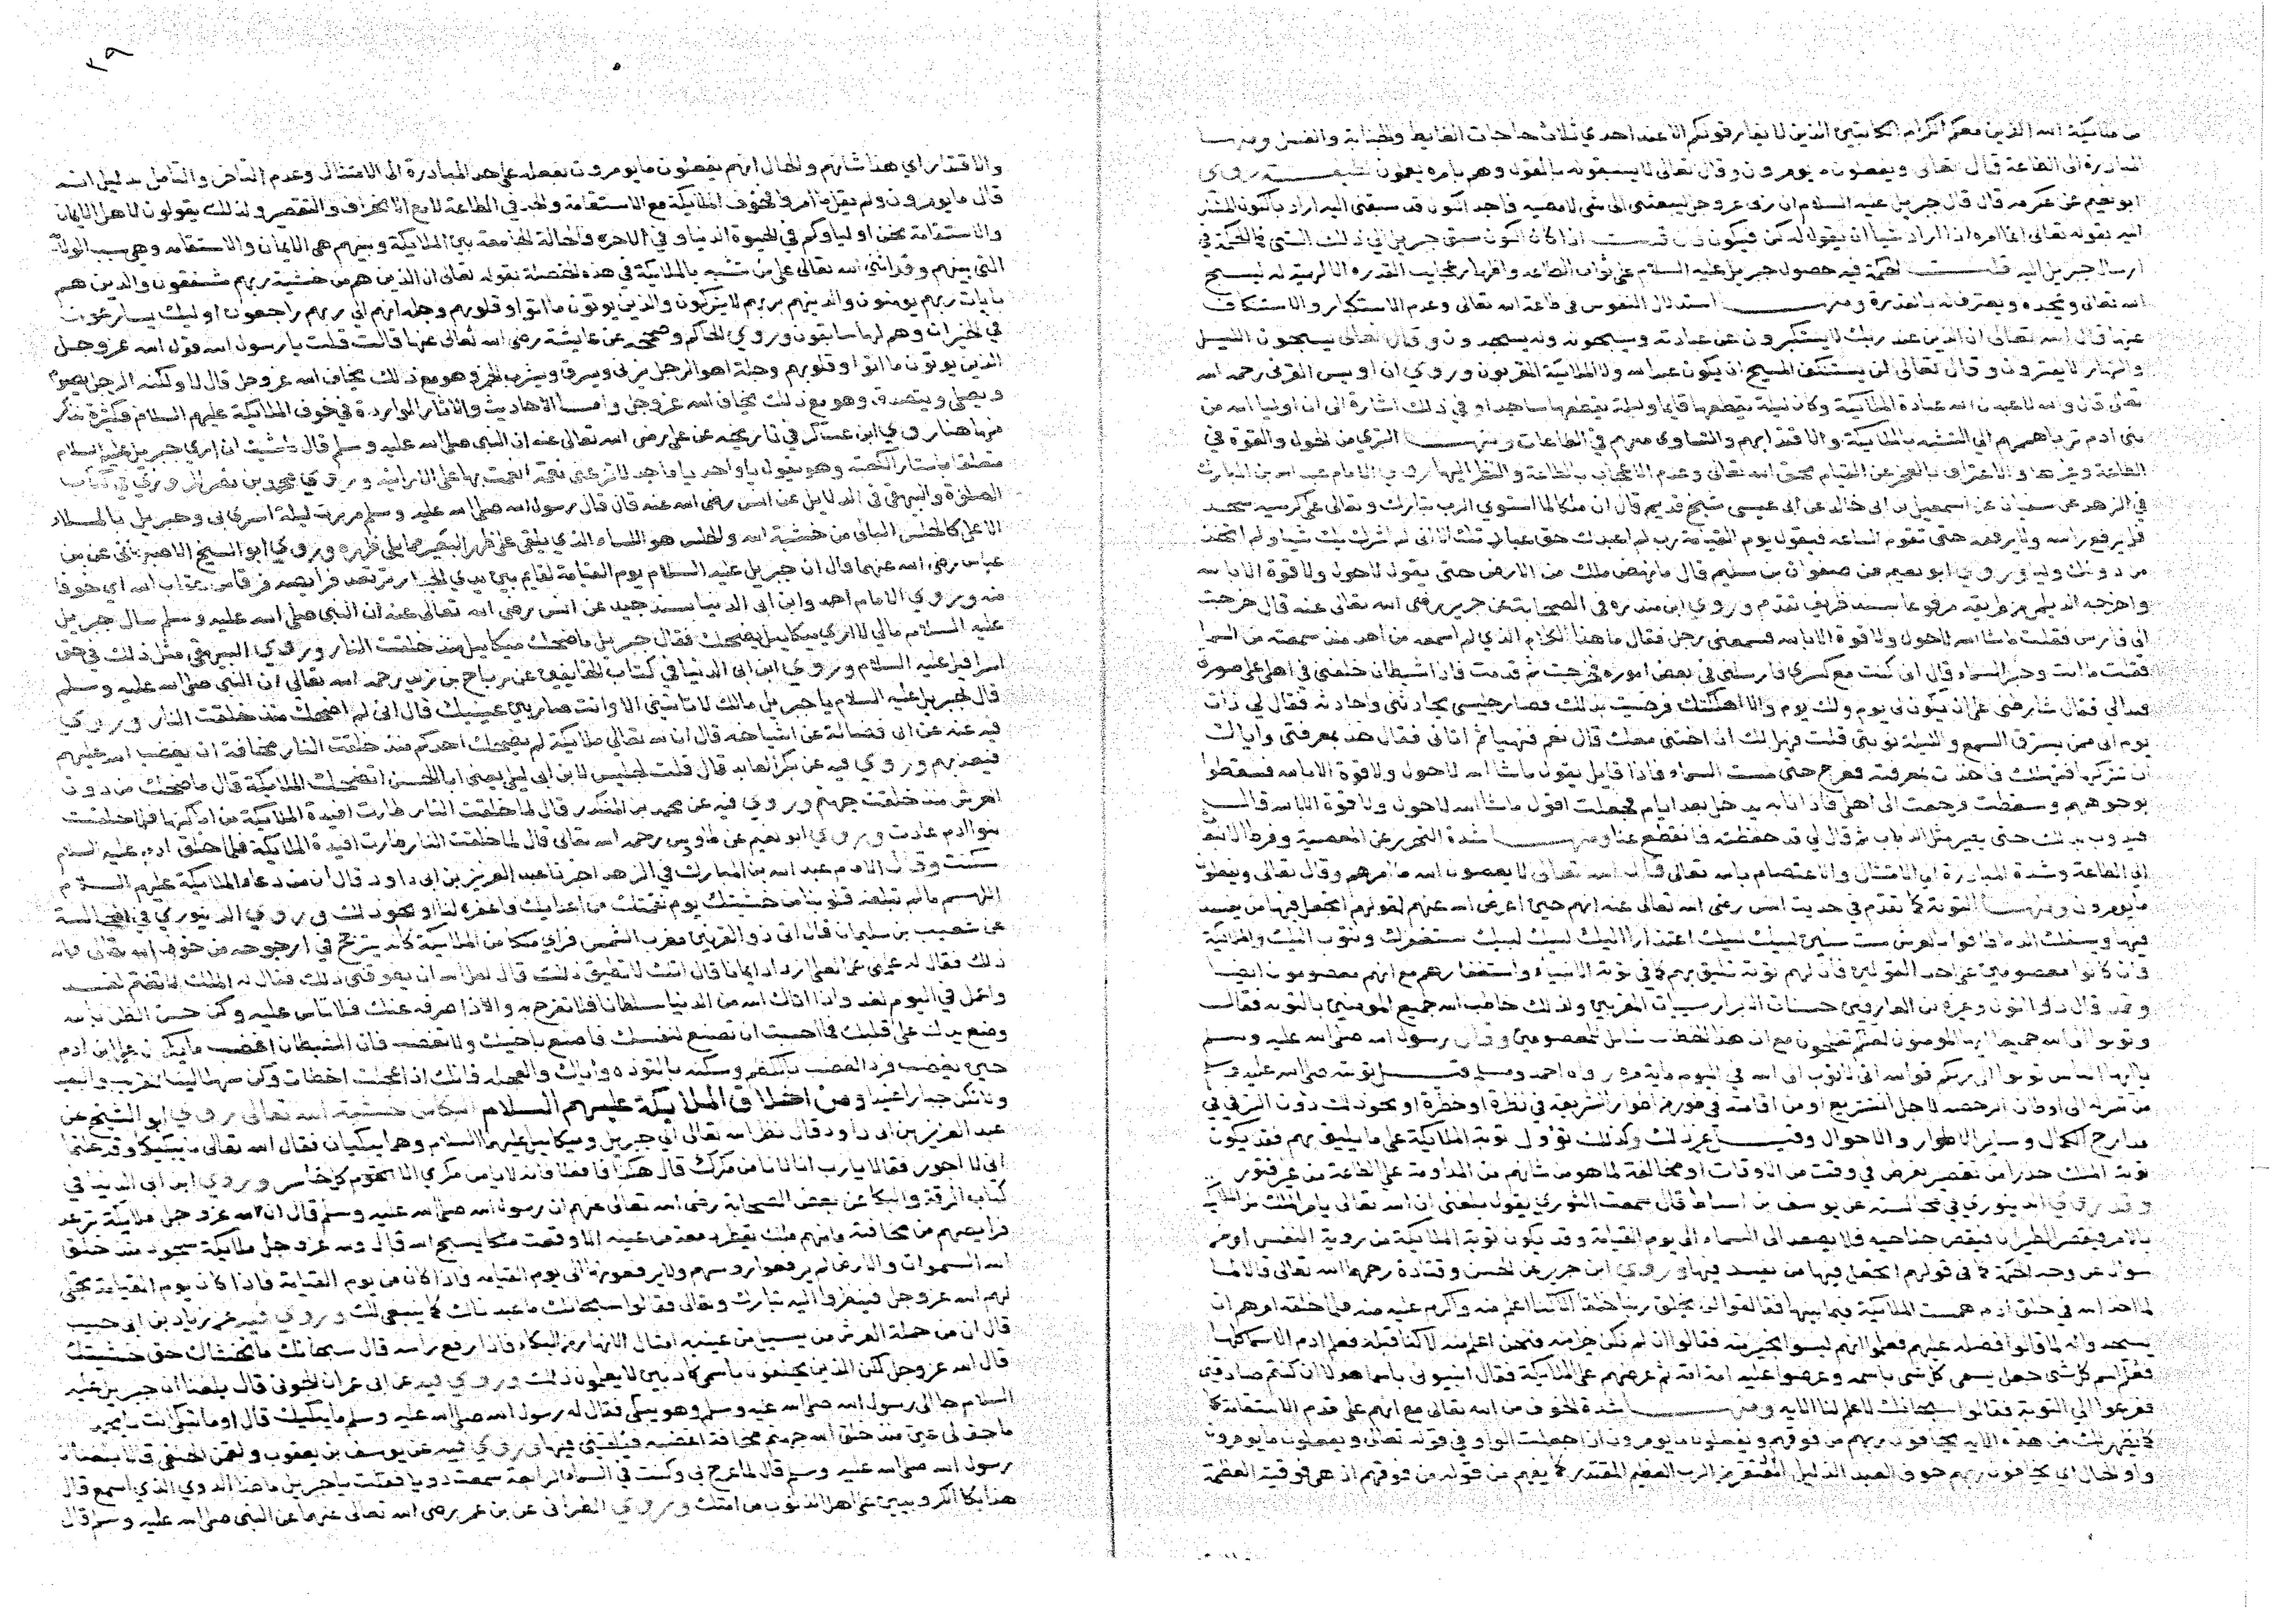 من ملائكة الله الذين معكم الكرام الكاتبين الذين لا يفارقونكم الا عند احدي ثلاث حاجات الغايط والجنابة والغسل ومنها
المبادرة الى الطاعة قال تعالى ويفعلون ما يومرون وقال تعالى لا يسبقونه بالقول وهم بامره يعملون روي
ابو نعيم عن عكرمة قال قال جبريل عليه السلام ان ربي عز وجل ليبعثني الى الشي لامضيه فاجد الكون قد سبقني اليه اراد بالكون المشار
اليه بقوله تعالى انما امره اذا اراد شيا ان يقول له كن فيكون فان قلت اذا كان الكون سبق جبريل الى ذلك الشي فما الحكمة في
ارسال جبريل اليه قلت الحكمة فيه حصول جبريل عليه السلام على ثواب الطاعة واظهار عجايب القدرة الالهية له ليسبح
الله تعالى ويمجده ويعترف له بالقدرة ومنها استذلال النفوس في طاعة الله تعالى وعدم الاستكبار والاستنكاف
عنها قال الله تعالى ان الذين عند ربك لا يستكبرون عن عبادته ويسبحونه وله يسجدون وقال تعالى يسبحون الليل
والنهار لا يفترون وقال تعالى لن يستنكف المسيح ان يكون عبدا لله ولا الملايكة المقربون وروي ان اويس القرني رحمه الله
تعالى قال والله لاعبدن الله عبادة الملايكة وكان ليلة يقطعها قايما وليلة يقطعها ساجدا وفي ذلك اشارة الى ان اوليا الله من
بني ادم ترباهمهم الى التشبه بالملايكة والاقتدا بهم والتساوي معهم في الطاعات ومنها التبري من الحول والقوة في
الطاعة وغيرها والاعتراف بالعجز عن القيام بحق الله تعالى وعدم الاعجاب بالطاعة والنظر اليها روي الامام عبد الله بن المبارك
في الزهد عن سفيان عن اسمعيل بن ابي خالد عن ابي عيسى شيخ قديم قال ان ملكا لما استوي الرب تبارك وتعالى على كرسيه سجد
فلم يرفع راسه ولا يرفعه حتى تقوم الساعة فيقول يوم القيامة رب لم اعبدك حق عبادتك الا اني لم اشرك بك شيا ولم اتخذ
من دونك وليا وروي ابو نعيم عن صفوان بن سليم قال ما نهض ملك من الارض حتى يقول لا حول ولا قوة الا بالله
واخرجه الديلمي من طريقه مرفوعا بسند ظريف تقدم وروي ابن منده في الصحابة عن جرير رضي الله تعالى عنه قال خرجت
الى فارس فقلت ما شا الله لا حول ولا قوة الا بالله فسمعني رجل فقال ما هذا الكلام الذي لم اسمعه من احد منذ سمعته من السما
فقلت ما انت وخبر السماء قال اني كنت مع كسري فارسلني في بعض اموره فخرجت ثم قدمت فاذا شيطان خلفني في اهلي على صورتي
فبدا لي فقال شارطني على ان يكون لي يوم ولك يوم والا اهلكتك فرضيت بذلك فصار جليسي يحادثني واحادثه فقال لي ذات
يوم اني ممن يسترق السمع والليلة نوبتي قلت فهل لك ان اختبي معك قال نعم فتهيا ثم اتاني فقال خذ بمعرفتي واياك
ان تتركها فتهلك فاخذت بمعرفته فعرج حتى لمست السماء فاذا قايل يقول ما شا الله لا حول ولا قوة الا بالله فسقطوا
لوجوههم وسقطت فرجعت الى اهلي فاذا انا به يدخل بعد ايام فجعلت اقول ما شا الله لا حول ولا قوة الا بالله قال
فيذوب بذلك حتى يصير مثل الذباب ثم قال لي قد حفظته فانقطع عنا ومنها شدة التحرز عن المعصية وفرط الانقياد
الى الطاعة وشدة المبادرة الى الامتثال والاعتصام بالله تعالى قال الله تعالى لا يعصون الله ما امرهم وقال تعالى ويفعلون
ما يومرون ومنها التوبة كما تقدم في حديث انس رضي الله تعالى عنه انهم حين اعرض الله عنهم لقولهم اتجعل فيها من يفسد
فيها ويسفك الدما طافوا بالعرش ست سنين لبيك لبيك اعتذارا اليك لبيك لبيك نستغفرك ونتوب اليك والملايكة
وان كانوا معصومين على احد القولين فان لهم توبة تليق بهم كما في توبة الانبياء واستغفارهم مع انهم معصومون ايضا
وقد قال ذو النون وغيره من العارفين حسنات الابرار سيات المقربين ولذلك خاطب الله جميع المومنين بالتوبة فقال
وتوبوا الى الله جميعا ايها المومنون لعلكم تفلحون مع ان هذا الخطاب شامل للمعصومين وقال رسول الله صلى الله عليه وسلم
يا ايها الناس توبوا الى ربكم فوالله اني لاتوب الى الله في اليوم ماية مرة رواه احمد ومسلم قيل توبته صلى الله عليه وسلم
من تنزله الى اوطان الرخصة لاجل التشريع او من اقامته في طور من اطوار الشريعة في نظرة او خطرة او نحو ذلك دون الترقي في
مدارج الكمال وساير الاطوار والاحوال وقيل غير ذلك وكذلك تؤول توبة الملايكة على ما يليق بهم فقد يكون
توبة الملك حذرا من تقصير يعرض في وقت من الاوقات او مخالفة لما هو من شانهم من المداومة على الطاعة من غير فتور
وقد روي الدينوري في مجالسته عن يوسف بن اسباط قال سمعت الثوري يقول بلغني ان الله تعالى يامر الملك من الملايكة
بالامر فيقصر الطيران فيقص جناحيه فلا يصعد الى السماء الى يوم القيامة وقد يكون توبة الملايكة من روية النفس او من
سوال عن وجه الحكمة كما في قولهم اتجعل فيها من يفسد فيها وروي ابن جرير عن الحسن وقتادة رحمهما الله تعالى قالا لما
لما اخذ الله في خلق ادم همست الملايكة فيما بينها فقالوا لن يخلق ربنا خلقا الا كنا اعلم منه واكرم عليه منه فلما خلقه امرهم ان
يسجدوا له لما قالوا ففضله عليهم فعلموا انهم ليسوا بخير منه فقالوا ان لم نكن خيرا منه فنحن اعلم منه لانا كنا قبله فعلم ادم الاسما كلها
فعلم اسم كل شي جعل يسمي كل شي باسمه وعرضوا عليه امة امة ثم عرضهم على الملايكة فقال انبيوني باسما هولا ان كنتم صادقين
ففزعوا الى التوبة فقالوا سبحانك لا علم لنا الاية ومنها شدة الخوف من الله تعالى مع انهم على قدم الاستقامة كما
يظهر لك من هذه الاية يخافون ربهم من فوقهم ويفعلون ما يومرون اذا جعلت الواو في قوله تعالى ويفعلون ما يومرون
واو الحال اي يخافون ربهم خوف العبد الذليل المفتقر من الرب العظيم المقتدر كما يفهم من قوله من فوقهم اذ هي فوقية العظمة
٢٩
والاقتدار اي هذا شانهم والحال انهم يفعلون ما يومرون بفعله على حد المبادرة الى الامتثال وعدم التاخر والتامل بدليل انه
قال ما يومرون ولم يقل ما امروا فخوف الملايكة مع الاستقامة والجد في الطاعة لا مع الانحراف والتقصير ولذلك يقولون لاهل الايمان
والاستقامة نحن اولياوكم في الحيوة الدنيا وفي الاخرة والحالة الجامعة بين الملايكة وبينهم هي الايمان والاستقامة وهي سبب الولاية
التي بينهم وقد اثنى الله تعالى على من تشبه بالملايكة في هذه الخصلة بقوله تعالى ان الذين هم من خشية ربهم مشفقون والذين هم
بايات ربهم يومنون والذين هم بربهم لا يشركون والذين يوتون ما اتوا وقلوبهم وجلة انهم الى ربهم راجعون اوليك يسارعون
في الخيرات وهم لها سابقون وروي الحاكم وصححه عن عايشة رضي الله تعالى عنها قالت قلت يا رسول الله قول الله عز وجل
الذين يوتون ما اتوا وقلوبهم وجلة اهو الرجل يزني ويسرق ويشرب الخمر وهو مع ذلك يخاف الله عز وجل قال لا ولكنه الرجل يصوم
ويصلي ويتصدق وهو مع ذلك يخاف الله عز وجل واما الاحاديث والاثار الواردة في خوف الملايكة عليهم السلام فكثيرة نذكر
منها هنا روي ابن عساكر في تاريخه عن علي رضي الله تعالى عنه ان النبي صلى الله عليه وسلم قال ما شيت ان اري جبريل عليه السلام
متعلقا باستار الكعبة وهو يقول يا واحد يا ماجد لا تزل عني نعمة انعمت بها علي الا رايته وروي محمد بن نصر المروزي في كتاب
الصلوة والبيهقي في الدلايل عن انس رضي الله عنه قال قال رسول الله صلى الله عليه وسلم مررت ليلة اسري بي وجبريل بالملا
الاعلى كالحلس البالي من خشية الله والحلس هو الكساء الذي يلقى على ظهر البعير مما يلي ظهره وروي ابو الشيخ الاصبهاني عن بن
عباس رضي الله عنهما قال ان جبريل عليه السلام يوم القيامة لقايم بين يدي الجبار ترتعد فرايصه فرقا من عذاب الله اي خوفا
منه وروي الامام احمد وابن ابي الدنيا بسند جيد عن انس رضي الله تعالى عنه ان النبي صلى الله عليه وسلم سال جبريل
عليه السلام مالي لا اري ميكاييل يضحك فقال جبريل ما ضحك ميكاييل منذ خلقت النار وروي البيهقي مثل ذلك في حق
اسرافيل عليه السلام وروي ابن ابي الدنيا في كتاب الخايفين عن رباح بن زيد رحمه الله تعالى ان النبي صلى الله عليه وسلم
قال لجبريل عليه السلام يا جبريل مالك لا تاتيني الا وانت صار بين عينيك قال اني لم اضحك منذ خلقت النار وروي
فيه عنه عن ابي فضالة عن اشياخه قال ان لله تعالى ملايكة لم يضحك احدهم منذ خلقت النار مخافة ان يغضب الله عليهم
فيعذبهم وروي فيه عن بكر العابد قال قلت لجليس لابن ابي ليلى يعني ابا الحسن اتضحك الملايكة قال ما ضحك من دون
العرش منذ خلقت جهنم وروي فيه عن محمد بن المنكدر قال لما خلقت النار طارت افيدة الملايكة من اماكنها فلما خلقت
بنوا ادم عادت وروي ابو نعيم عن طاوس رحمه الله تعالى قال لما خلقت النار طارت افيدة الملايكة فلما خلق ادم عليه السلام
سكنت وقال الامام عبد الله بن المبارك في الزهد اخبرنا عبد العزيز بن ابي داود قال ان من دعاء الملايكة عليهم السلام
اللهم ما لم تبلغه قلوبنا من خشيتك يوم نقمتك من اعدايك فاغفره لنا او نحو ذلك وروي الدينوري في المجالسة
عن شعيب بن سليمان قال اتى ذو القرنين مغرب الشمس فراي ملكا من الملايكة كانه يترجح في ارجوحة من خوف الله تعالى فهاله
ذلك فقال له علمني علما لعلي ازداد ايمانا قال انك لا تطيق ذلك قال لعل الله ان يطوقني ذلك فقال له الملك لا تغتم لغد
واعمل في اليوم لغد واذا اتاك الله من الدنيا سلطانا فلا تفرح به واذا صرفه عنك فلا تاس عليه وكن حسن الظن بالله
وضع يدك على قلبك فما احببت ان تصنع لنفسك فاصنع باخيك ولا تغضب فان الشيطان اغضب ما يكون على ابن ادم
حين يغضب فرد الغضب بالكظم وسكنه بالتودة واياك والعجلة فانك اذا عجلت اخطات وكن سهلا لينا للقريب والبعيد
ولا تكن جبارا عنيدا ومن اخلاق الملايكة عليهم السلام البكا من خشية الله تعالى روي ابو الشيخ عن
عبد العزيز بن ابي داود قال نظر الله تعالى الى جبريل وميكاييل عليهما السلام وهما يبكيان فقال الله تعالى ما يبكيكما وقد علمتما
اني لا اجور فقالا يا رب انا لا نامن مكرك قال هكذا فافعلا فانه لا يامن مكري الا كل قوم خاسر وروي ابن ابي الدنيا في
كتاب الرقة والبكا عن بعض الصحابة رضي الله تعالى عنهم ان رسول الله صلى الله عليه وسلم قال ان لله عز وجل ملايكة ترعد
فرايصهم من مخافته ما منهم ملك تقطر دمعة من عينه الا وقعت ملكا يسبح الله قال ولله عز وجل ملايكة سجود منذ خلق
الله السموات والارض لم يرفعوا روسهم ولا يرفعونها الى يوم القيامة واذا كان من يوم القيامة فاذا كان يوم القيامة تجلى
لهم الله عز وجل فينظروا اليه تبارك وتعالى فقالوا سبحانك ما عبدناك كما ينبغي لك وروي فيه عن زياد بن ابي حبيب
قال ان من حملة العرش من يسيل من عينيه امثال الانهار من البكاء فاذا رفع راسه قال سبحانك ما نخشاك حق خشيتك
قال الله عز وجل لكن الذين يحلفون باسمي كاذبين لا يعلمون ذلك وروي فيه عن ابي عمران الجوني قال بلغنا ان جبريل عليه
السلام جا الى رسول الله صلى الله عليه وسلم وهو يبكي فقال له رسول الله صلى الله عليه وسلم ما يبكيك قال او ما تبكي انت يا محمد
ما جفت لي عين منذ خلق الله جهنم مخافة ان اعصيه فيلقيني فيها وروي فيه عن يوسف بن يعقوب ولقمن الحنفي قالا بلغنا ان
رسول الله صلى الله عليه وسلم قال لما عرج بي وكنت في السماء الرابعة سمعت دويا فقلت يا جبريل ما هذا الدوي الذي اسمع قال
هذا بكا الكروبيين على اهل الذنوب من امتك وروي الطبراني عن بن عمر رضي الله تعالى عنهما عن النبي صلى الله عليه وسلم قال